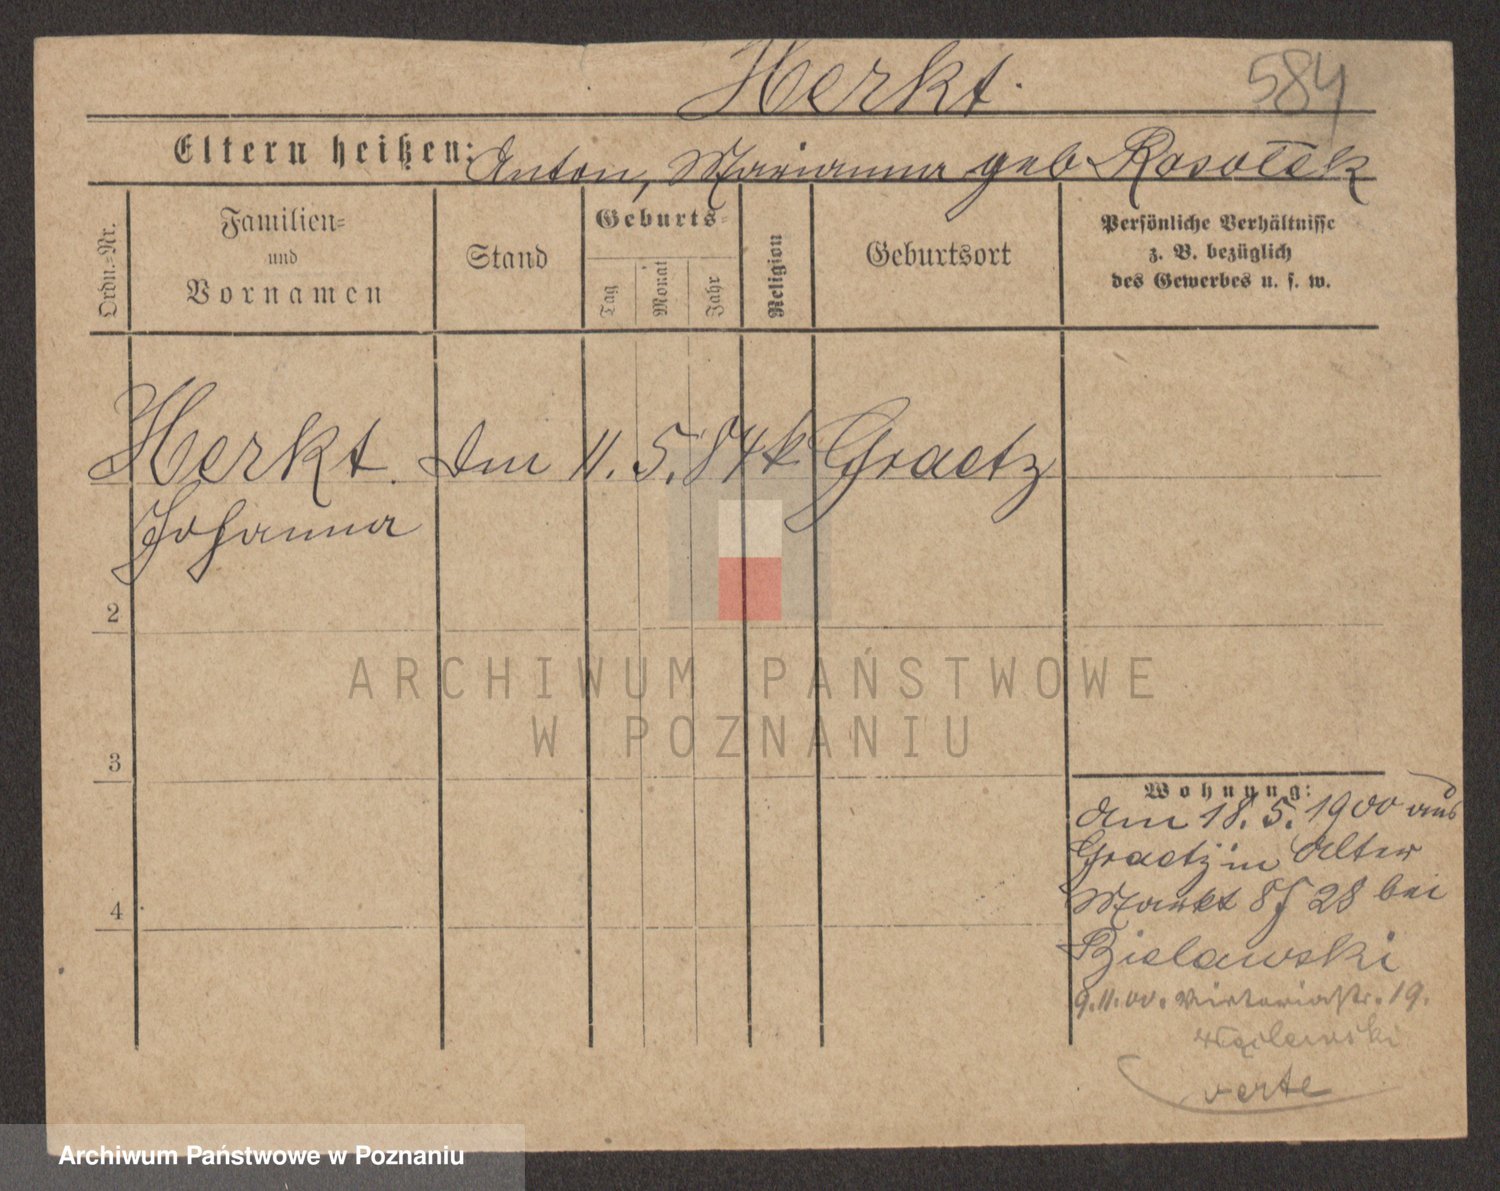 Herkt.
584
Eltern heißen: Anton, Marianna geb Rosolek
Ordn.-Nr.
Familien-
und
Vornamen
Stand
Geburts-
Tag
Monat
Jahr
Religion
Geburtsort
Persönliche Verhältnisse
z. B. bezüglich
des Gewerbes u. s. w.
Herkt. 11. 5. 84 k Graetz
Johanna
2
3
4
ARCHIWUM PAŃSTWOWE
W POZNANIU
Wohnung:
am 18. 5. 1900 aus
Graetz in Alter
Markt 87/28 bei
Bielawski
9.11.00. Victoriastr. 19.
verte
Archiwum Państwowe w Poznaniu